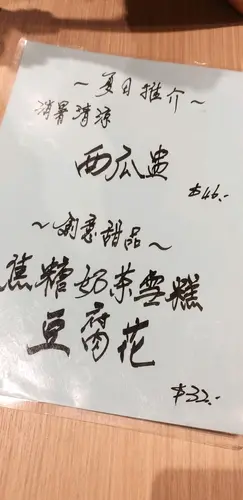 ～夏日推介～
消暑清涼
西瓜盅
$46.-
～創意甜品～
焦糖奶茶雪糕
豆腐花
$32.-